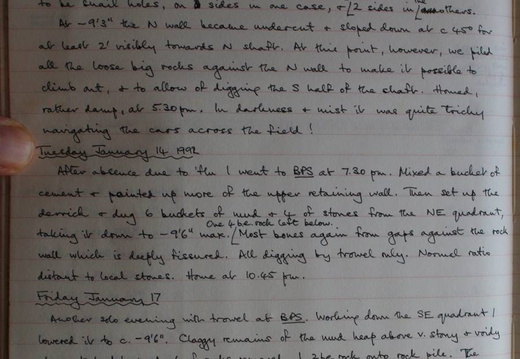 to be snail holes, on 3 sides in one case, & 2 sides in the others.
At -9'3" the N wall became undercut & sloped down at c 45° for
at least 2' visibly towards N shaft. At this point, however, we piled
all the loose big rocks against the N wall to make it possible to
climb out, & to allow of digging the S half of the shaft. Homed,
rather damp, at 5.30pm. In darkness & mist it was quite tricky
navigating the cars across the field!
Tuesday January 14 1992
After absence due to 'flu I went to BPS at 7.30 pm. Mixed a bucket of
cement & pointed up more of the upper retaining wall. Then set up the
derrick & dug 6 buckets of mud & 4 of stones from the NE quadrant,
One 4 be rock left below.
taking it down to -9'6" max. Most bones again from gaps against the rock
wall which is deeply fissured. All digging by trowel only. Normal ratio
distant to local stones. Home at 10.45 pm.
Friday January 17
Another solo evening with trowel at BPS. Working down the SE quadrant I
lowered it to c. -9'6". Claggy remains of the mud heap above v. stony & voidy
1 2be rock onto rock pile. The